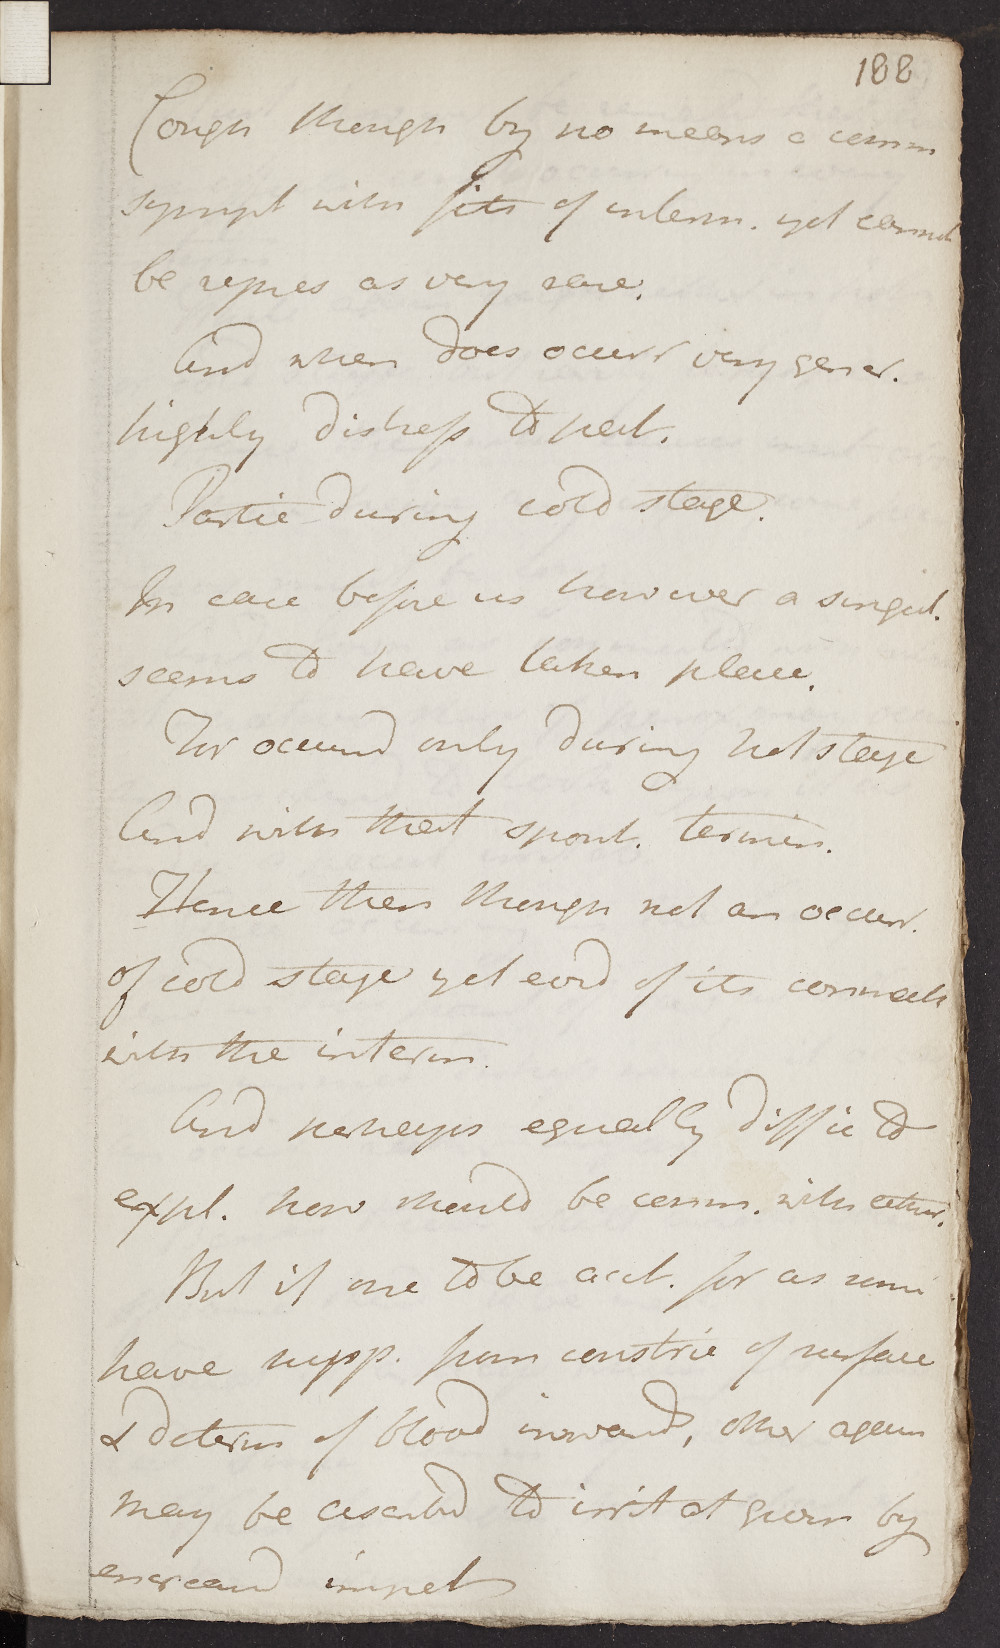 188
Cough though by no means a comm
sympt with fits of interm. yet cannot
be repres as very rare.
And when does occurr very gener.
highly distress to pat.
Partic during cold stage.
In case before us however a singul.
seems to have taken place.
For occurrd only during hot stage
And with that spont. termin.
Hence then though not an occurr.
of cold stage yet evid of its connect
with the interm.
And perhaps equally diffic to
expl. how should be conn. with either.
But if one to be acct. for as some
have supp. from constric of surface
& determ of blood inward, other again
may be ascribd to irrit at given by
encreasd impet